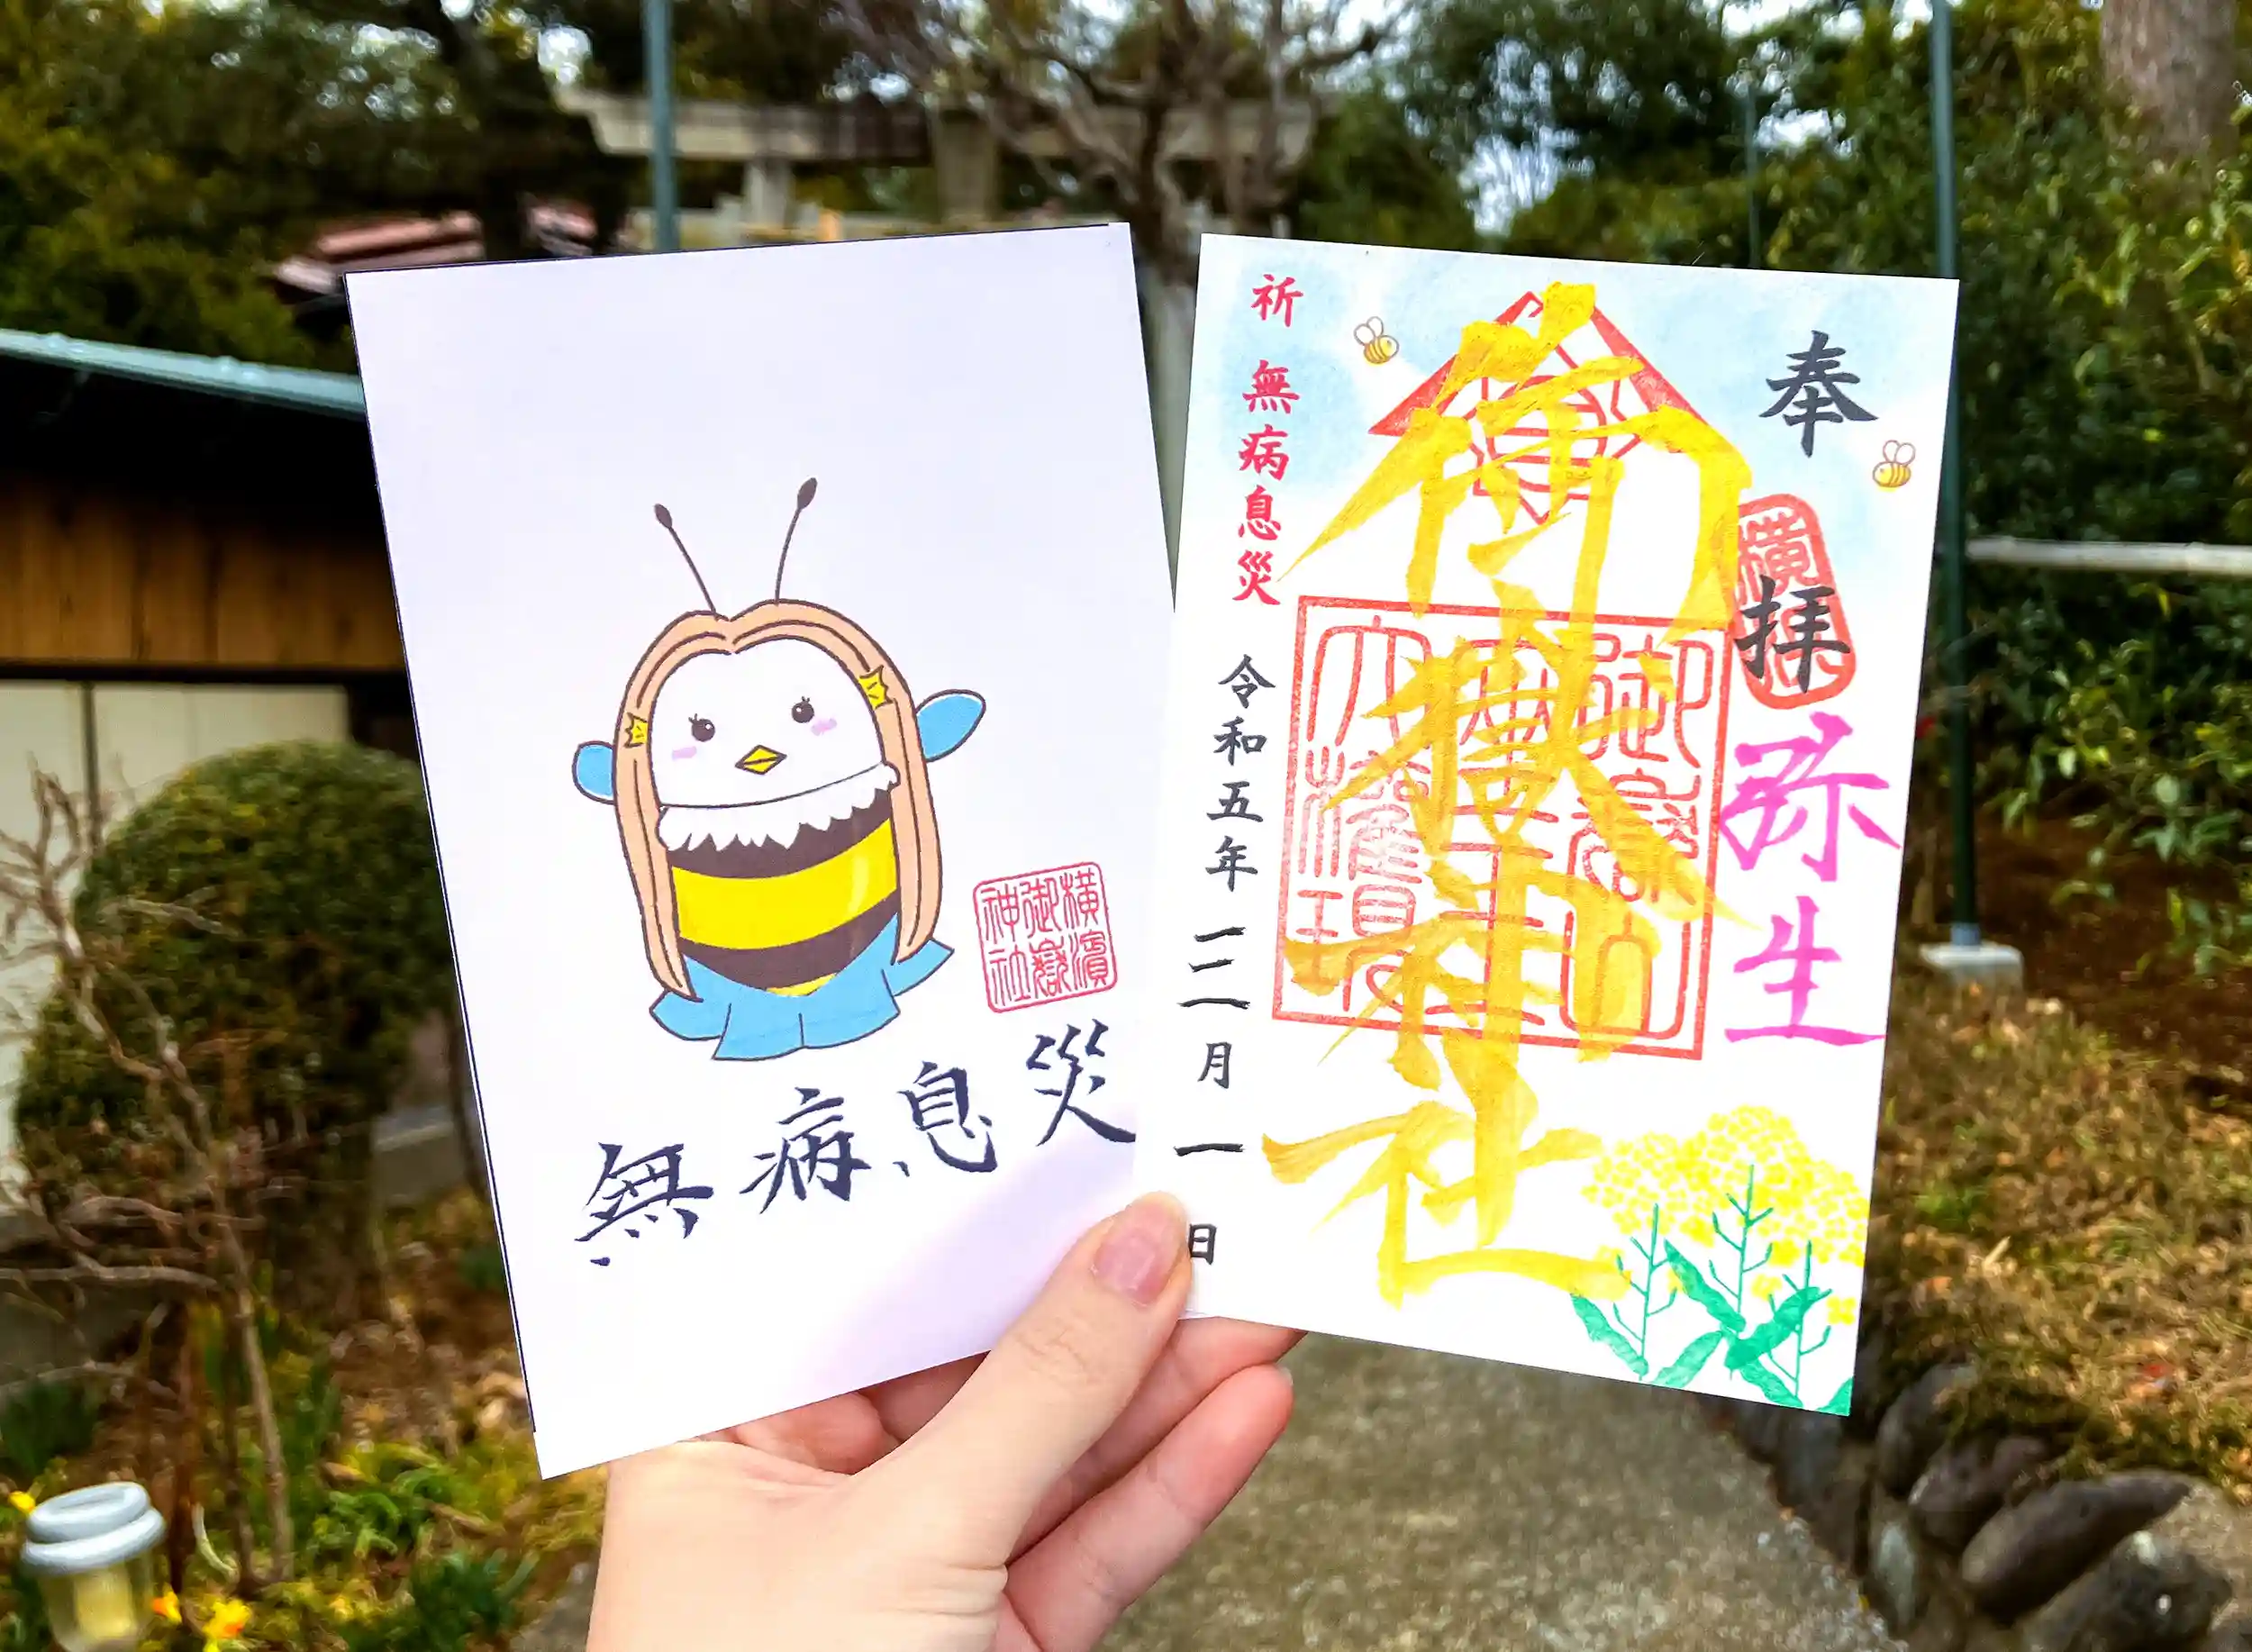 無病息災
横濱
御嶽
神社
奉拝
弥生
御嶽神社
御嶽山
大権現
祈 無病息災
令和五年三月一日